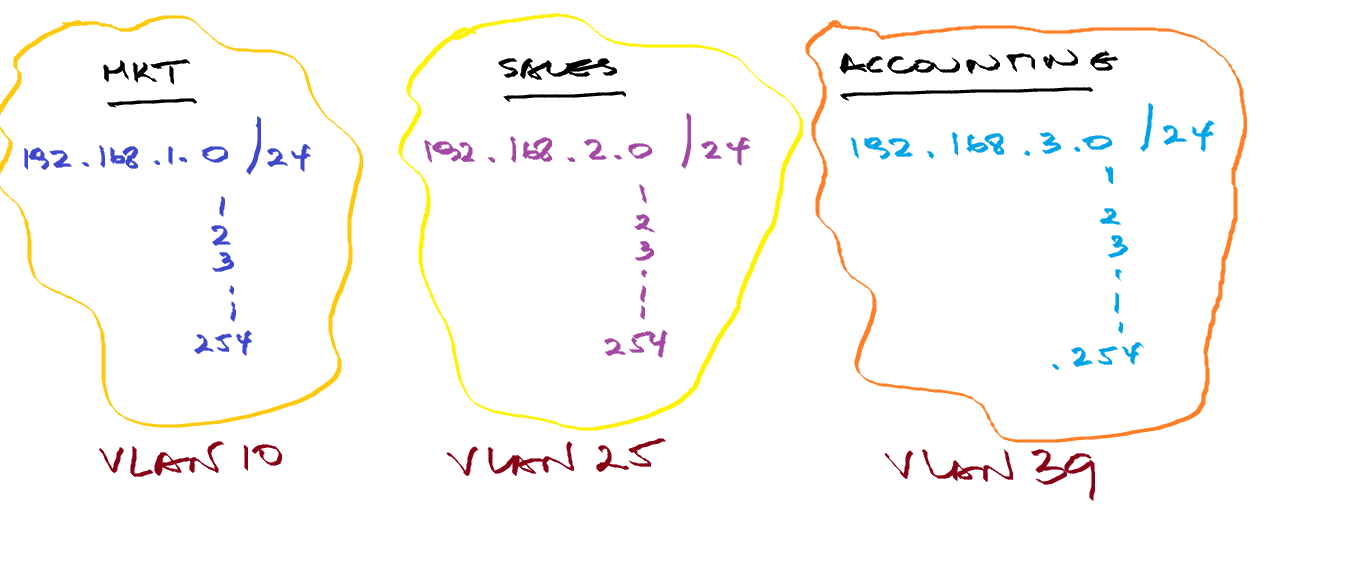 MKT
192.168.1.0 /24
1
2
3
.
254
VLAN 10
SALES
192.168.2.0 /24
1
2
3
.
254
VLAN 25
ACCOUNTING
192.168.3.0 /24
1
2
3
.
.254
VLAN 39